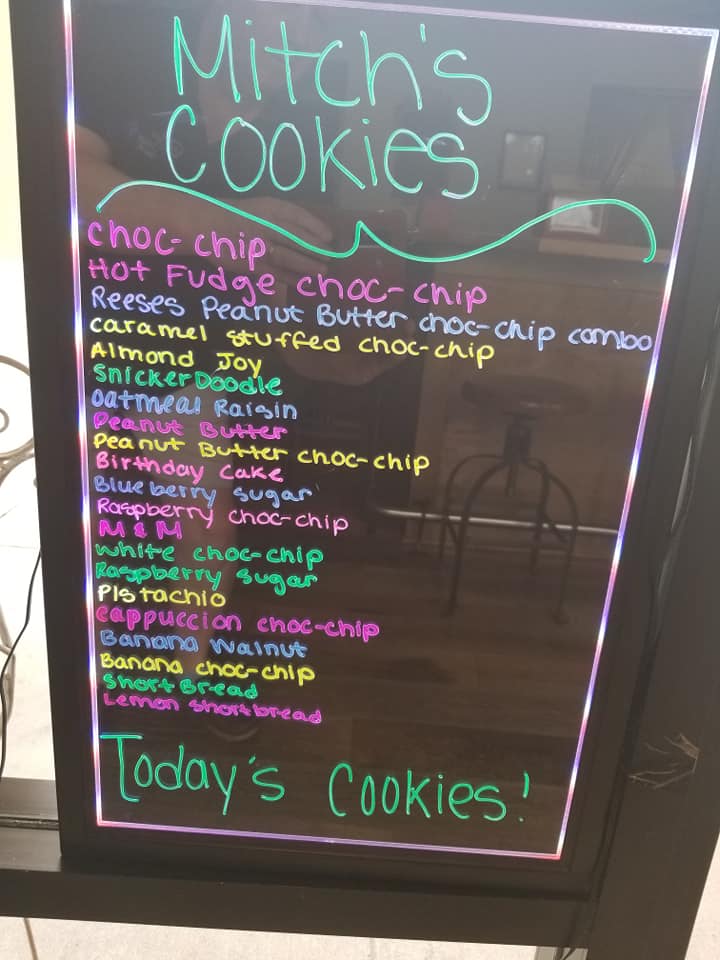 Mitch's
Cookies
choc-chip
Hot Fudge choc-chip
Reeses Peanut Butter choc-chip combo
caramel stuffed choc-chip
Almond Joy
SnickerDoodle
Oatmeal Raisin
Peanut Butter
Peanut Butter choc-chip
Birthday Cake
Blueberry Sugar
Raspberry choc-chip
M & M
White choc-chip
Raspberry Sugar
PIstachio
Cappuccion choc-chip
Banana Walnut
Banana choc-chip
Short Bread
Lemon Shortbread
Today's Cookies!